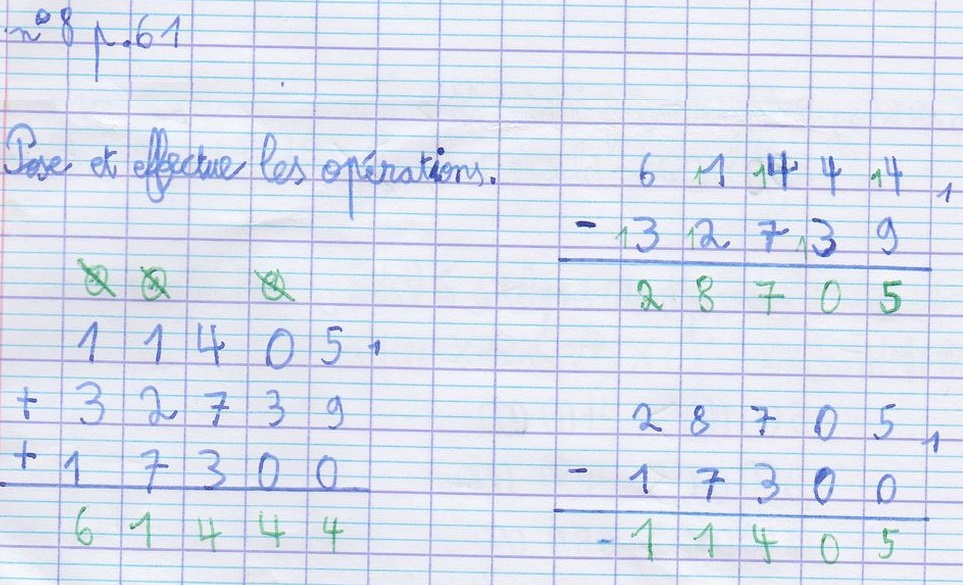 n°8 p.61
Pose et effectue les opérations.
1 1 4 0 5,
+ 3 2 7 3 9
+ 1 7 3 0 0
6 1 4 4 4
6 11 14 4 14,
- 13 12 7 13 9
2 8 7 0 5
2 8 7 0 5,
- 1 7 3 0 0
- 1 1 4 0 5